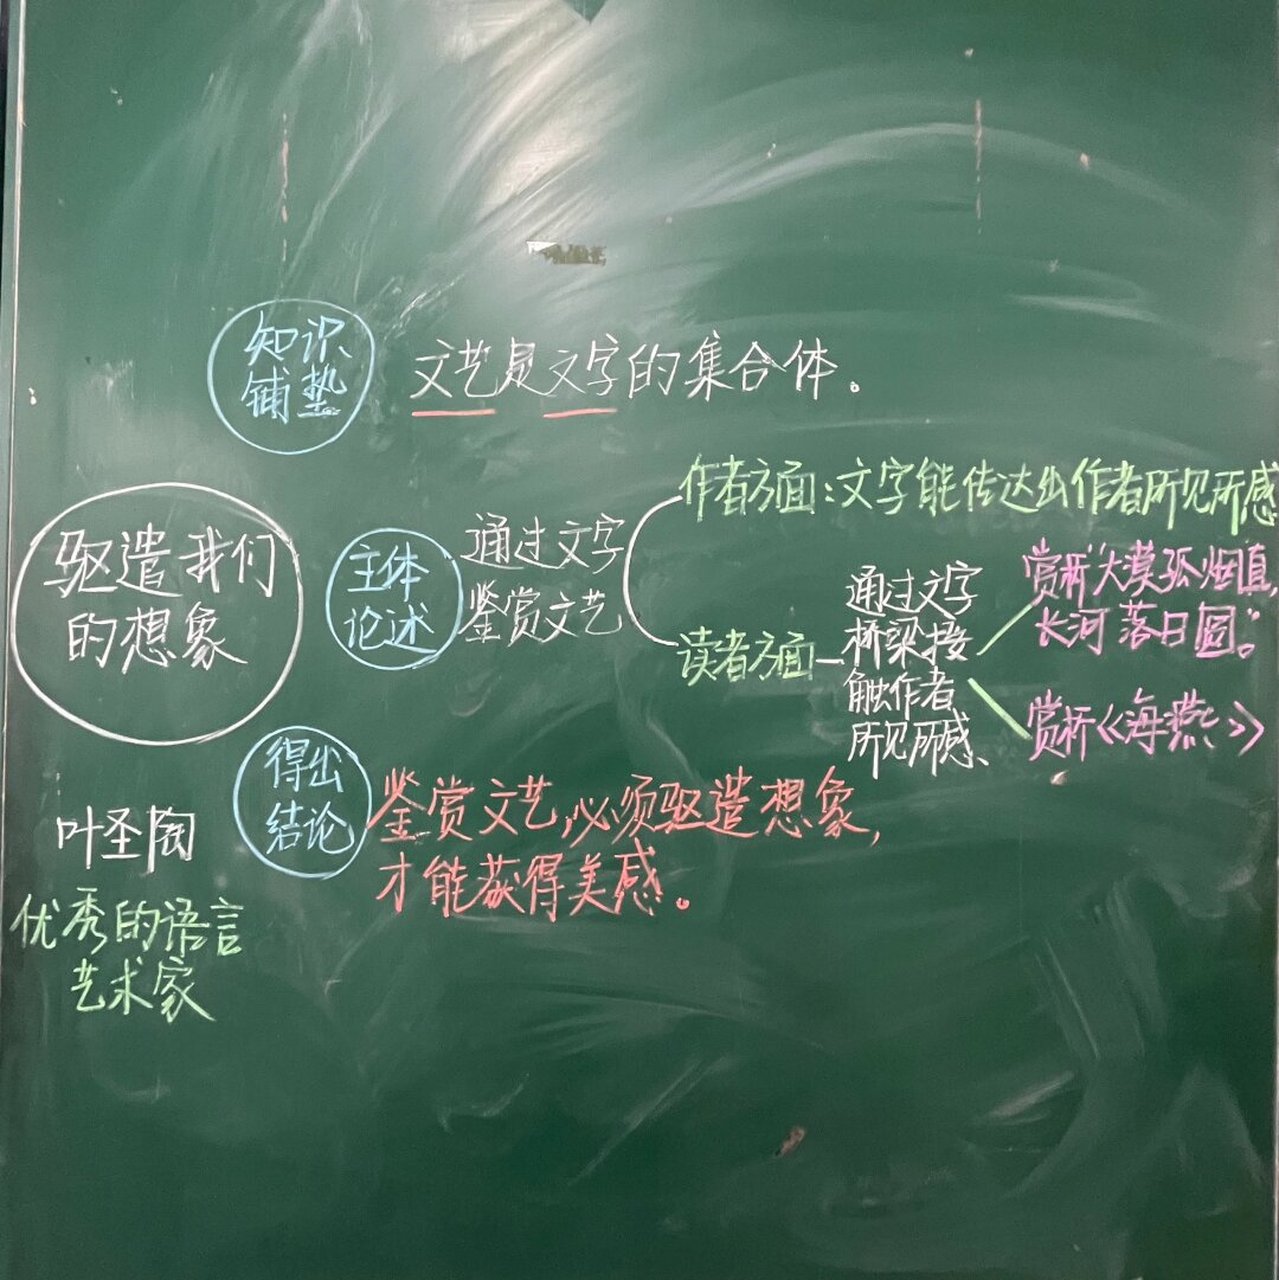 知识
铺垫
文艺是文字的集合体。
驱遣我们
的想象
主体
论述
通过文字
鉴赏文艺
作者方面：文字能传达出作者所见所感
读者方面
通过文字
桥梁接
触作者
所见所感、
赏析“大漠孤烟直，
长河落日圆。”
赏析《海燕》
得出
结论
鉴赏文艺，必须驱遣想象，
才能获得美感。
叶圣陶
优秀的语言
艺术家